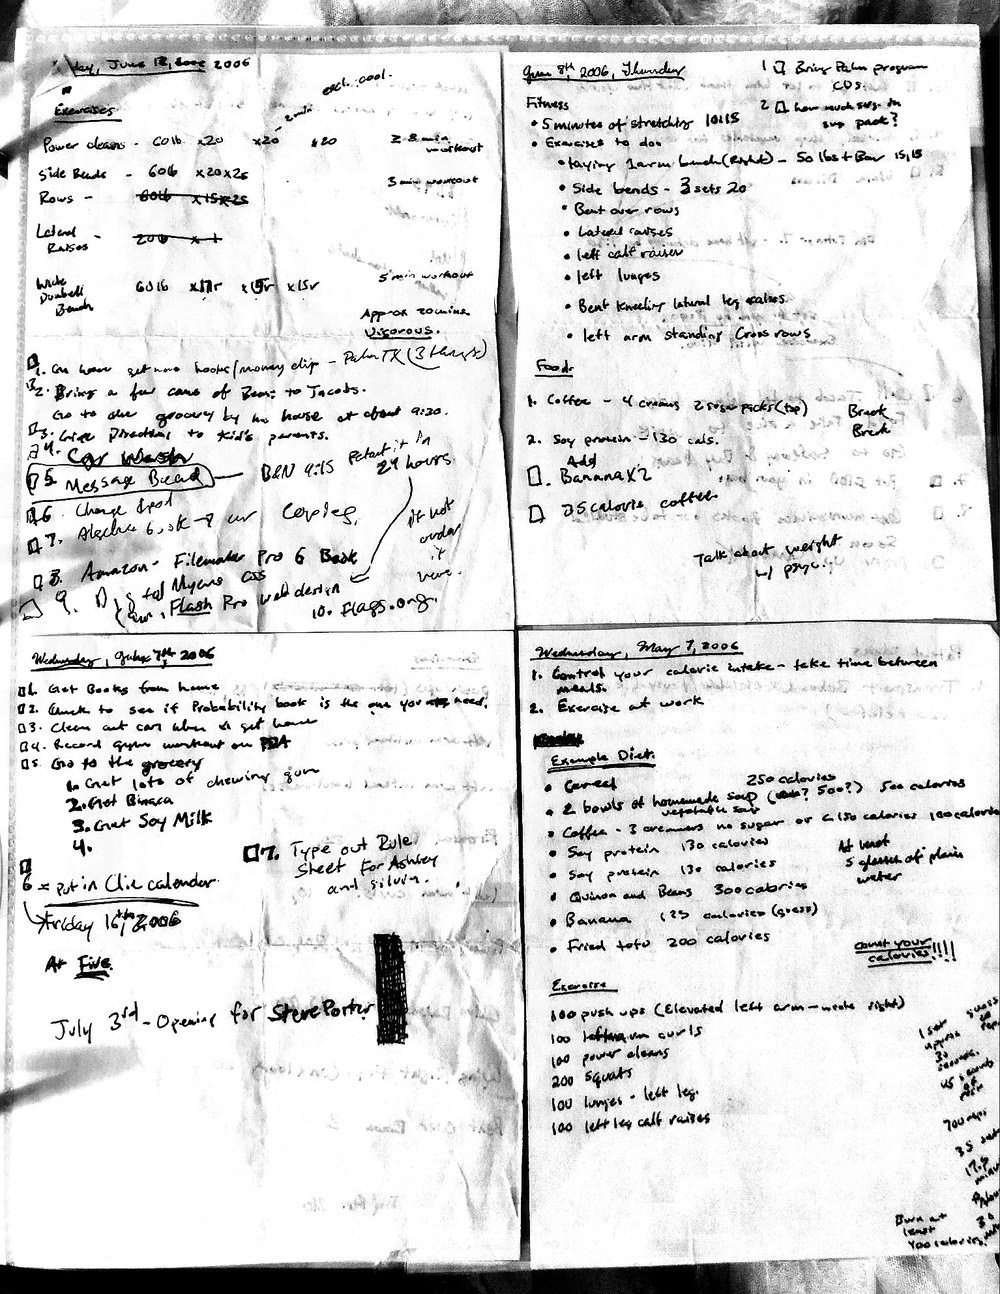 June 12, 2006
Exercises
each. cool.
2 min
Power cleans - 60lb x20 x20 x20
2-8 min workout
Side Bends - 60lb x20x25
3 min workout
Rows - 60lb x15x25
Lateral Raises - 20lb x
Wide Dumbell Bench
60lb x17r x15r x15r
5 min workout
Approx 20 mins
Vigorous.
1. get more books/money clip - Palm TX (3 things)
2. Bring a few cans of Beans to Jacobs.
Go to the grocery by his house at about 9:30.
3. Give Directions to Kid's parents.
4. Car Wash
5. Message Board - B&N 9:15
24 hours
6. Change
7. Algebra Copies,
If not order it
8. Amazon - Filemaker Pro 6 Book
9. CSS
Flash Pro web design
10. flags.org.
June 8th, 2006, Thursday
1 Bring Palm program CDs.
2 how much sugar in sug pack?
Fitness
• 5 minutes of stretching 10:15
• Exercises to do:
• laying 1 arm bench (Right) - 50 lbs + Bar 15, 15
• Side bends - 3 sets 20
• Bent over rows
• Lateral raises
• left calf raises
• left lunges
• Bent kneeling lateral leg raises
• left arm standing Cross rows
Food:
1. Coffee - 4 creams 2 sugar packs (top)
Break
Break
2. Soy protein - 130 cals.
Add
Banana x 2
25 calorie coffee
Talk about weight
w/
Wednesday, 7th, 2006
1. Get Books from home
2. Check to see if Probability book is the one you need.
3. Clean out car when I get home
4. Record gym workout on PDA
5. Go to the grocery
1. Get lots of chewing gum
2. Get Binaca
3. Get Soy Milk
4.
6 = put in Clie calender.
Friday 16th, 2006
At Five.
7. Type out Rule
Sheet for Ashley
and silvia.
July 3rd - Opening for Steve Porter
Wednesday, May 7, 2006
1. Control your calorie intake - take time between
meals.
2. Exercise at work
Example Diet:
• Cereal 250 calories
• 2 bowls of homemade soup (500?) 500 calories
vegetable soup
• Coffee - 3 creamers no sugar or 150 calories 100 calories
• Soy protein 130 calories
• Soy protein 130 calories
At least
5 glasses of plain
water
• Quinoa and Beans 300 calories
• Banana 125 calories (guess)
• Fried tofu 200 calories
count your
calories!!!!
Exercise
100 push ups (Elevated left arm - right)
100 left arm curls
100 power cleans
200 squats
100 lunges - left leg.
100 left leg calf raises
1 set
approx
30
seconds.
45 seconds
of
rest
700 reps
35 sets
17.5
minutes
Burn at
least
400 calories.